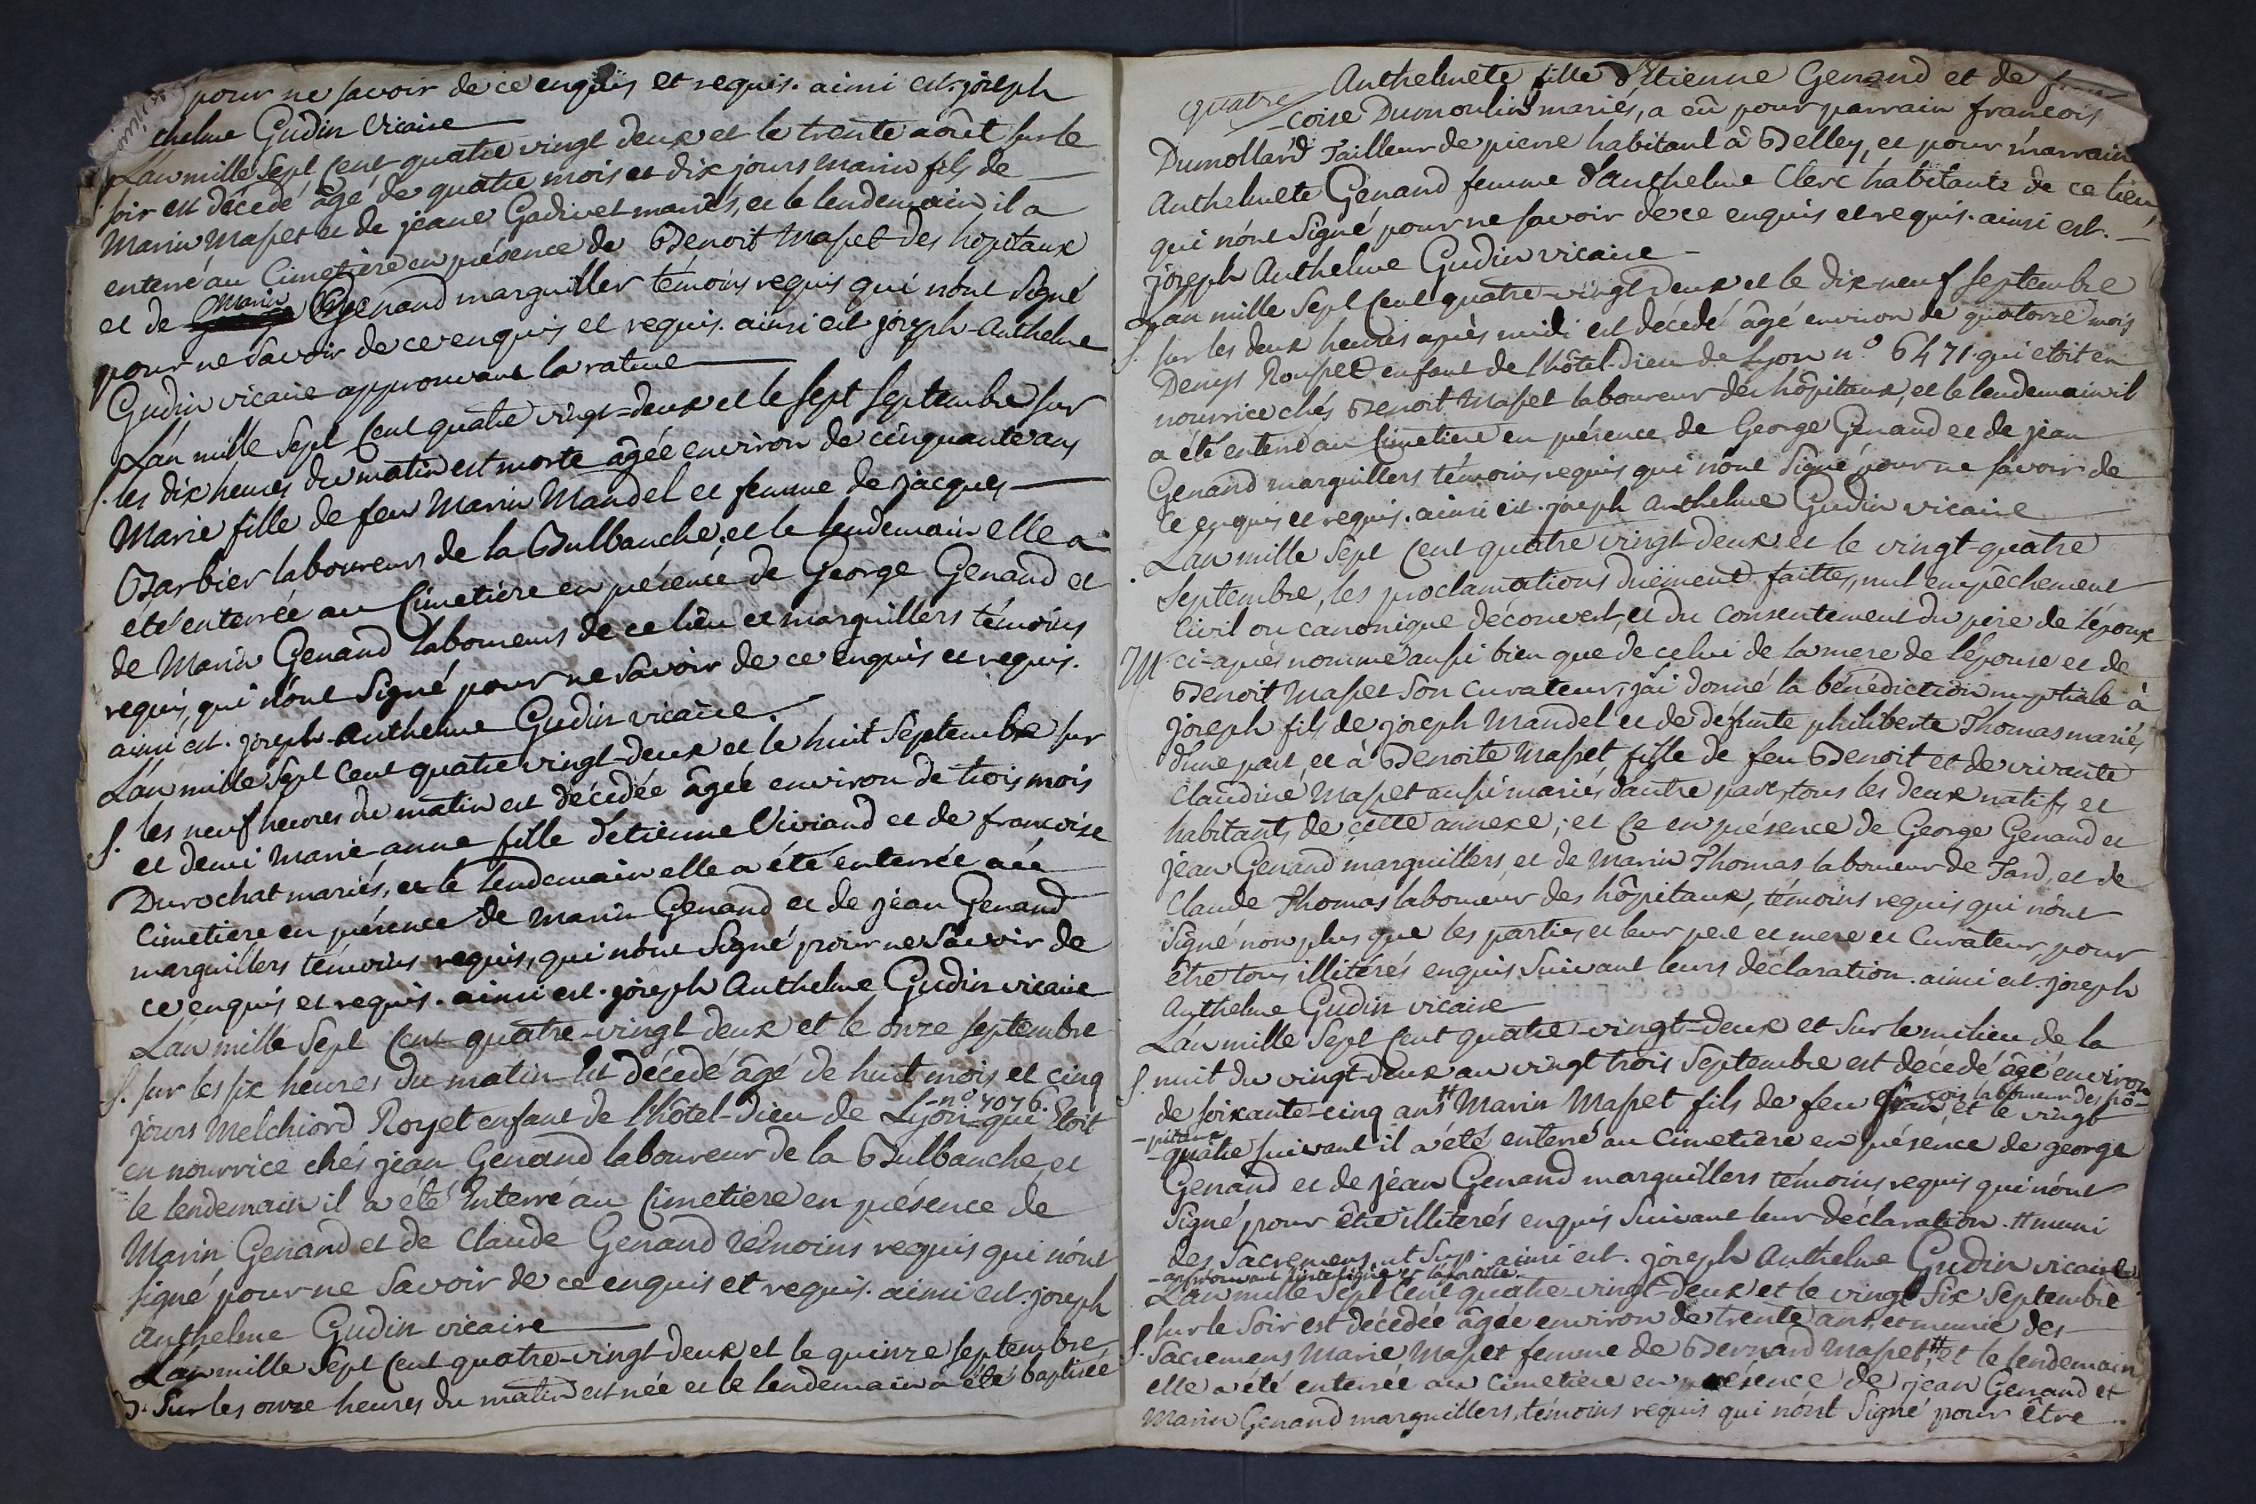 pour ne savoir de ce enquis et requis. ainsi est. joseph
thelme Gudin vicaire
L'an mille sept cent quatre vingt deux et le trente août sur le
soir est décédé âgé de quatre mois et dix jours marin fils de
Marin Masset et de jeane Gadivet mariés, et le lendemain il a
enterré au Cimetiere en présence de Benoit Masset des hôpitaux
et de Marin Genand marguiller témoins requis qui n'ont signé
pour ne savoir de ce enquis et requis. ainsi est joseph-Anthelme
Gudin vicaire approuvant la rature
L'an mille sept cent quatre vingt-deux et le sept septembre sur
S. les dix heures du matin est morte âgée environ de cinquante ans
Marie fille de feu Marin Mandel et femme de jacques
Barbier laboureur de la Bulbanche, et le lendemain elle a
été enterrée au Cimetière en présence de George Genand et
de Marin Genand laboureurs de ce lieu et marguillers témoins
requis, qui n'ont signé pour ne savoir de ce enquis et requis.
ainsi est. joseph-Anthelme Gudin vicaire.
L'an mille sept cent quatre vingt-deux et le huit septembre sur
S. les neuf heures du matin est décédée âgée environ de trois mois
et demi marie-anne fille d'etienne Viviand et de francoise
Durochat mariés, et le lendemain elle a été enterrée au
Cimetiere en présence de marin Genand et de jean Genand
marguillers témoins requis, qui n'ont signé pour ne savoir de
ce enquis et requis. ainsi est. joseph Anthelme Gudin vicaire
L'an mille sept cent quatre-vingt deux et le onze septembre
S. sur les six heures du matin est décédé âgé de huit mois et cinq
jours Melchiord Royet enfant de l'hôtel-Dieu de Lyon -n° 7076. qui étoit
en nourrice chés jean Genand laboureur de la Bulbanche, et
le lendemain il a été enterré au Cimetiere en présence de
Marin Genand et de Claude Genand témoins requis qui n'ont
signé pour ne savoir de ce enquis et requis. ainsi est. joseph
anthelme Gudin vicaire
L'an mille sept cent quatre-vingt deux et le quinze septembre
B. sur les onze heures du matin est née et le lendemain a été baptisée
quatre Anthelmete fille d'Etienne Genand et de
-coise Dumoulin mariés, a eû pour parrain francois
Dumollard Tailleur de pierre habitant à Belley, et pour marraine
Anthelmete Genand femme d'Anthelme Clerc habitants de ce lieu
qui n'ont signé pour ne savoir de ce enquis et requis. ainsi est.
joseph Anthelme Gudin vicaire
L'an mille sept cent quatre-vingt deux et le dix-neuf septembre
S. sur les deux heures après midi est décédé âgé environ de quatorze mois
Denys Rousset enfant de l'hôtel-Dieu de Lyon n° 6471. qui etoit en
nourrice chés Benoit Masset laboureur des hôpitaux, et le lendemain il
a été enterré au Cimetiere en présence de George Genand et de jean
Genand marguillers témoins requis qui n'ont signé pour ne savoir de
ce enquis et requis. ainsi est. joseph Anthelme Gudin vicaire
L'an mille sept cent quatre vingt-deux et le vingt-quatre
septembre, les proclamations duëment faittes, nul empêchement
civil ou canonique découvert, et du consentement du pere de l'époux
M. ci-après nommé aussi bien que de celui de la mere de l'épouse et de
Benoit Masset son curateur, j'ai donné la bénédiction nuptiale à
joseph fils de joseph Mandel et de défunte philiberte Thomas mariés
d'une part, et à Benoite Masset fille de feu Benoit et de vivante
Claudine Masset aussi mariés d'autre part, tous les deux natifs et
habitants de cette annexe; et ce en présence de George Genand et
jean Genand marguillers, et de Marin Thomas laboureur de Fard, et de
Claude Thomas laboureur des hôpitaux, témoins requis qui n'ont
signé non plus que les parties et leur pere et mere et Curateur, pour
être tous illitérés enquis suivant leurs déclaration. ainsi est. joseph
Anthelme Gudin vicaire
L'an mille sept cent quatre-vingt-deux et sur le milieu de la
S. nuit du vingt-deux au vingt trois septembre est décedé âgé environ
de soixante-cinq ans # Marin Masset fils de feu laboureur des hô-
-pitaux et le vingt
-quatre suivant il a été enterré au Cimetiere en présence de george
Genand et de jean Genand marguillers témoins requis qui n'ont
signé pour être illiterés enquis suivant leur déclaration. # muni
des sacremens ut sup. ainsi est. joseph Anthelme Gudin vicaire
-approuvant
L'an mille sept cent quatre-vingt-deux et le vingt six septembre
S. sur le soir est décédée âgée environ de trente ans, et munie des
sacremens Marie Masset femme de Bernard Masset, # et le lendemain
elle a été enterrée au cimetiere en présence de jean Genand et
Marin Genand marguillers, témoins requis qui n'ont signé pour être